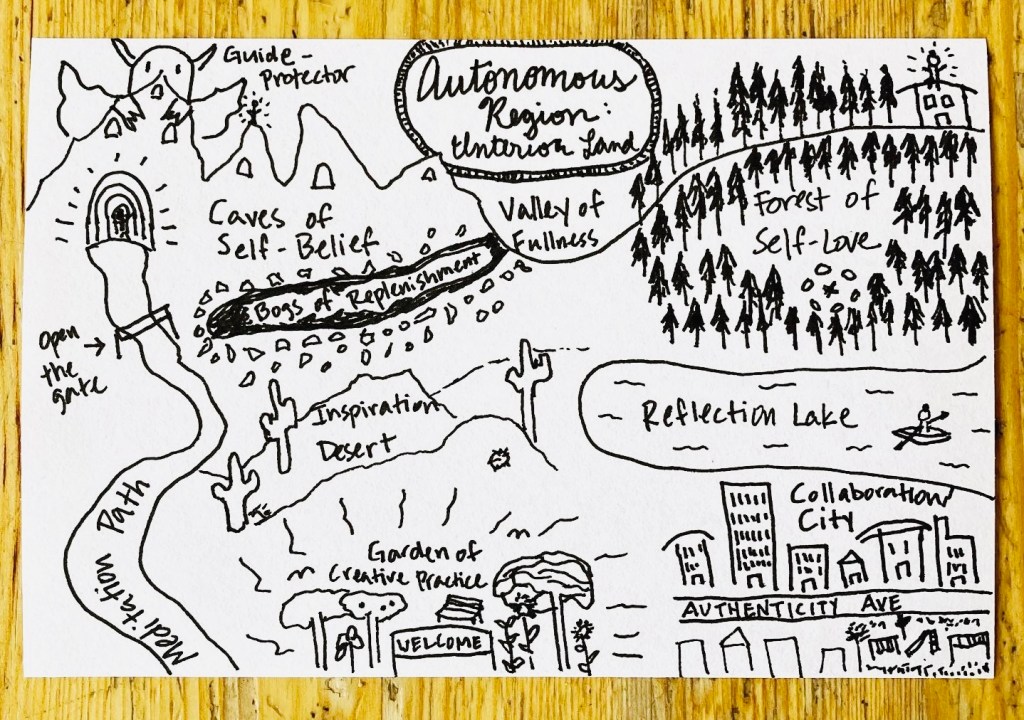 Guide-
Protector
Autonomous
Region:
Interior Land
Caves of
Self-Belief
Valley of
Fullness
Forest of
Self-Love
Bogs of Replenishment
Open
the
gate
Inspiration
Desert
Reflection Lake
Meditation Path
Garden of
Creative Practice
WELCOME
Collaboration
City
AUTHENTICITY AVE